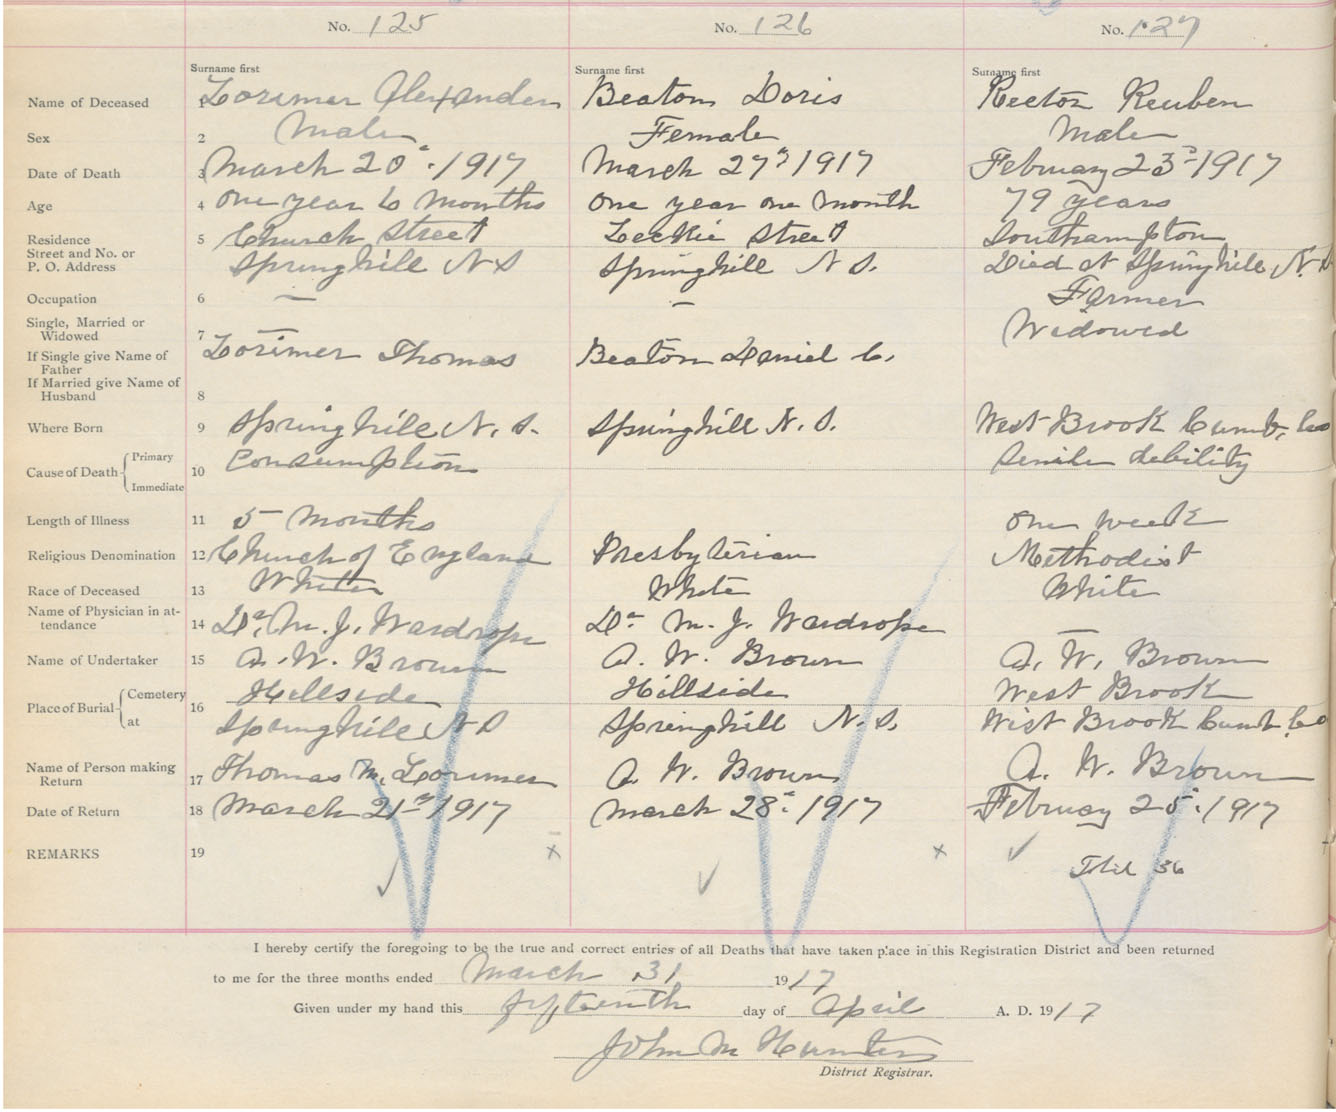 No. 125 No. 126 No. 127
Surname first Surname first Surname first
Name of Deceased 1 Lorimer Alexander Beaton Doris Rector Reuben
Sex 2 Male Female Male
Date of Death 3 March 20" 1917 March 27" 1917 February 23rd 1917
Age 4 one year 6 months one year one month 79 years
Residence 5 Church Street Leckie Street Southampton
Street and No. or
P. O. Address Springhill N S Springhill N S. Died at Springhill N. S
Occupation 6 — — Farmer
Single, Married or
Widowed 7 — Widowed
If Single give Name of
Father Lorimer Thomas Beaton Daniel C.
If Married give Name of
Husband 8
Where Born 9 Springhill N. S. Springhill N. S. West Brook Cumb. Co
Cause of Death Primary 10 Consumption Senile debility
Immediate
Length of Illness 11 5 months one week
Religious Denomination 12 Church of England Presbyterian Methodist
Race of Deceased 13 White White White
Name of Physician in at-
tendance 14 Dr. M. J. Wardrope Dr M. J. Wardrope —
Name of Undertaker 15 A. W. Brown A. W. Brown A. W. Brown
Place of Burial Cemetery 16 Hillside Hillside West Brook
at Springhill N S Springhill N. S. West Brook Cumb. Co
Name of Person making
Return 17 Thomas M. Lorimer A. W. Brown A. W. Brown
Date of Return 18 March 21st 1917 March 28" 1917 February 25" 1917
REMARKS 19
Total 36
I hereby certify the foregoing to be the true and correct entries of all Deaths that have taken place in this Registration District and been returned
to me for the three months ended March 31 1917
Given under my hand this fifteenth day of April A. D. 1917
John M Hunter
District Registrar.